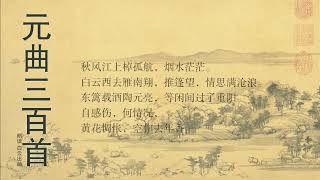 元曲三百首
秋风江上棹孤航，烟水茫茫。
白云西去雁南翔，推篷望，情思满沧浪。
东篱载酒陶元亮，等闲间过了重阳。
自感伤，何情况，
黄花惆怅，空作去年香。